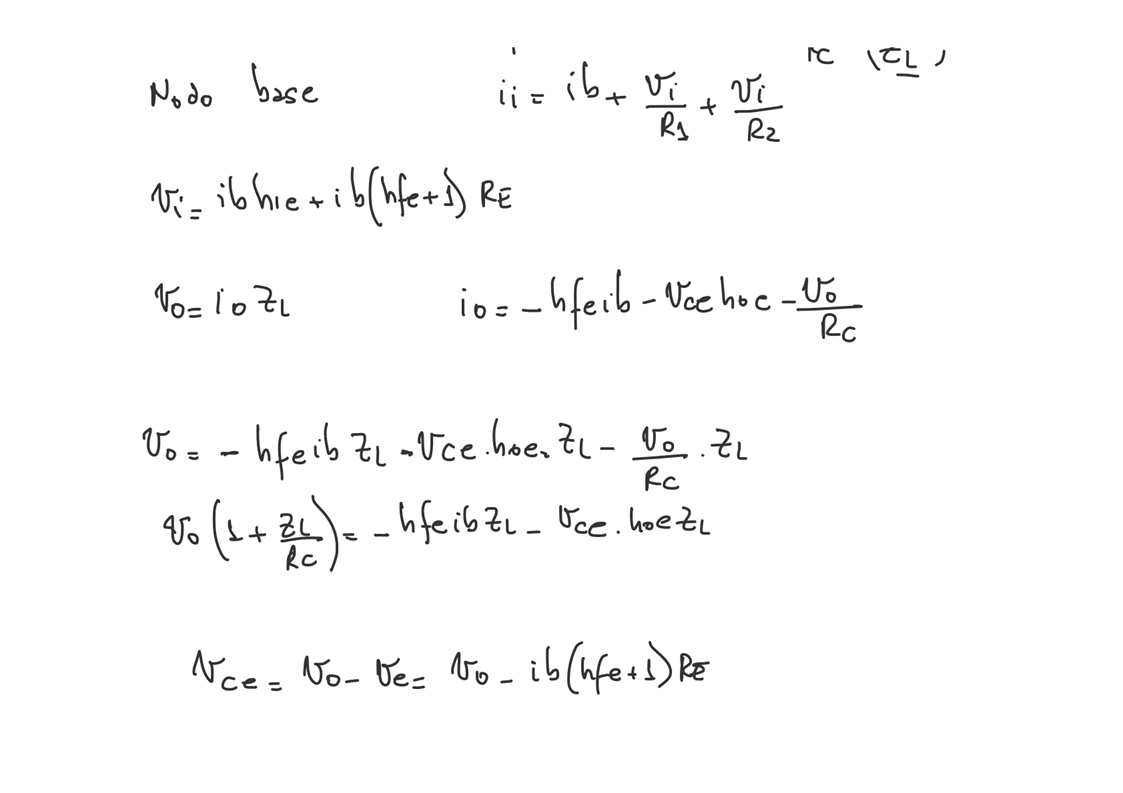 Nodo base ii = ib + vi/R1 + vi/R2
vi = ib hie + ib(hfe+1) RE
vo = io ZL io = -hfeib - vce hoe - vo/RC
vo = - hfeib ZL - vce.hoe. ZL - vo/RC . ZL
vo (1 + ZL/RC) = - hfeib ZL - vce. hoe ZL
vce = vo - ve = vo - ib(hfe+1) RE